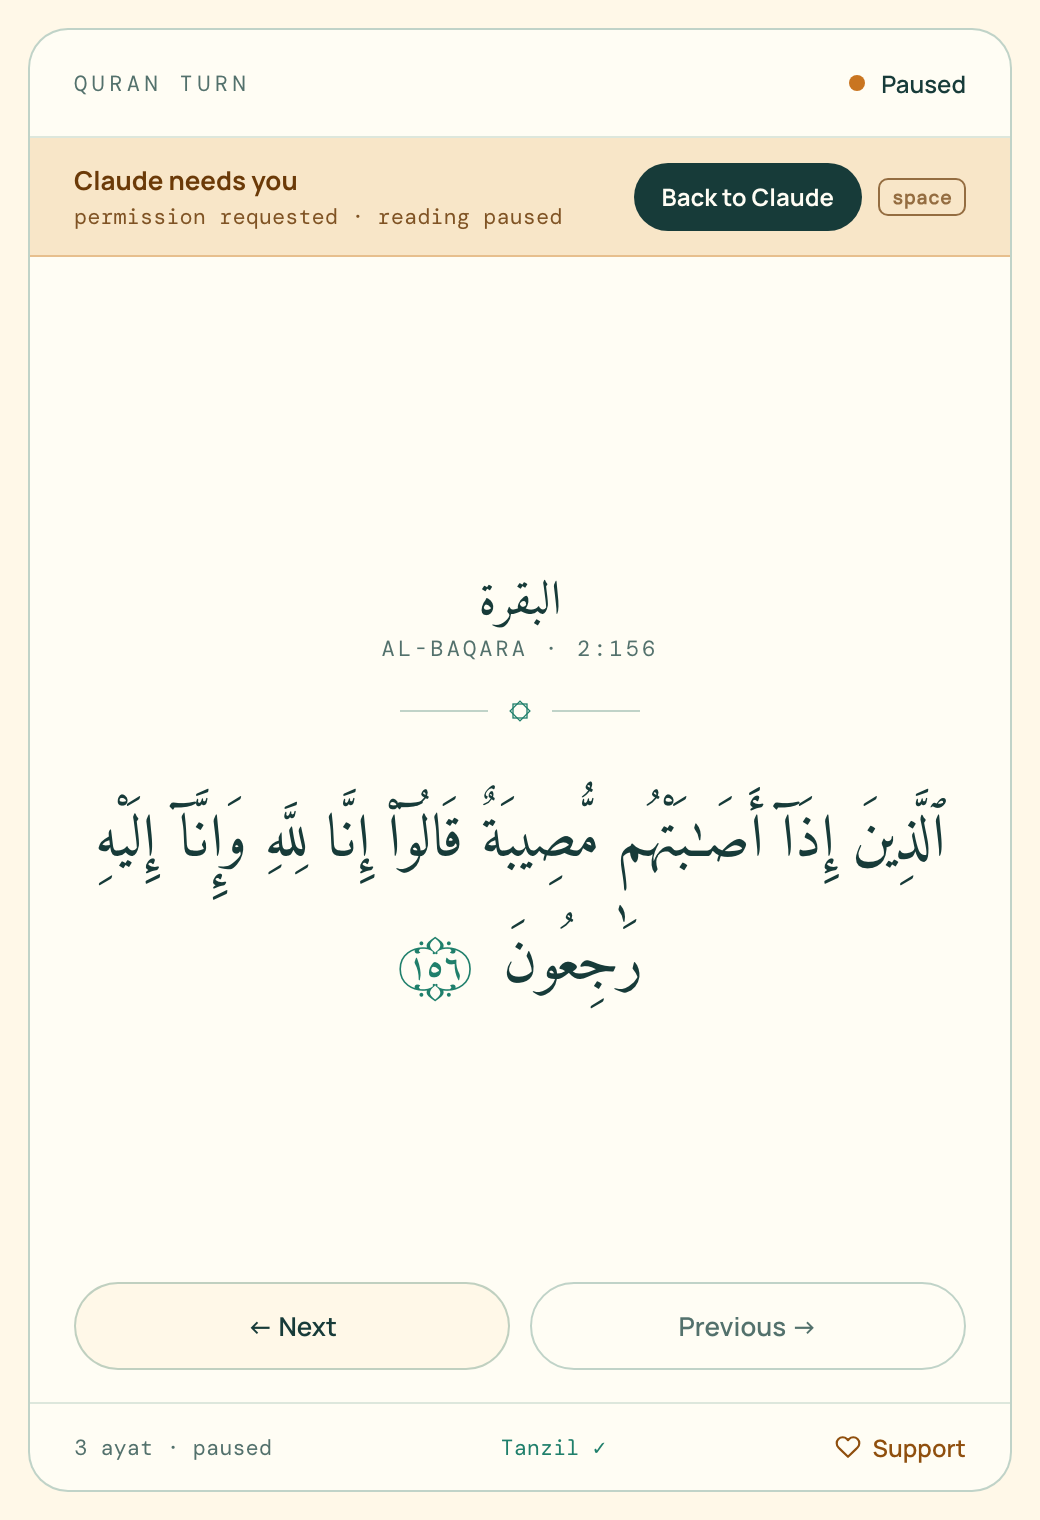 QURAN TURN
Paused
Claude needs you
permission requested · reading paused
Back to Claude
space
البقرة
AL-BAQARA · 2:156
ٱلَّذِينَ إِذَآ أَصَـٰبَتْهُم مُّصِيبَةٌ قَالُوٓا۟ إِنَّا لِلَّهِ وَإِنَّآ إِلَيْهِ
رَٰجِعُونَ ١٥٦
← Next
Previous →
3 ayat · paused
Tanzil ✓
Support